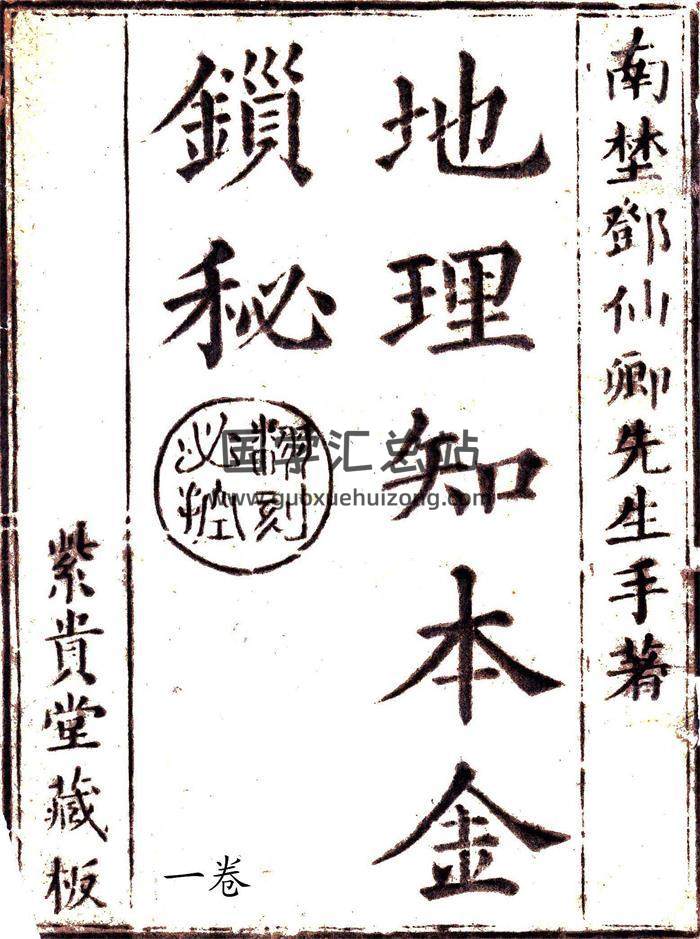 南埜鄧仙卿先生手著
地理知本金
鎻秘
翻刻
必
国学汇总站
www.guoxuehuizong.com
一卷
紫貴堂藏板